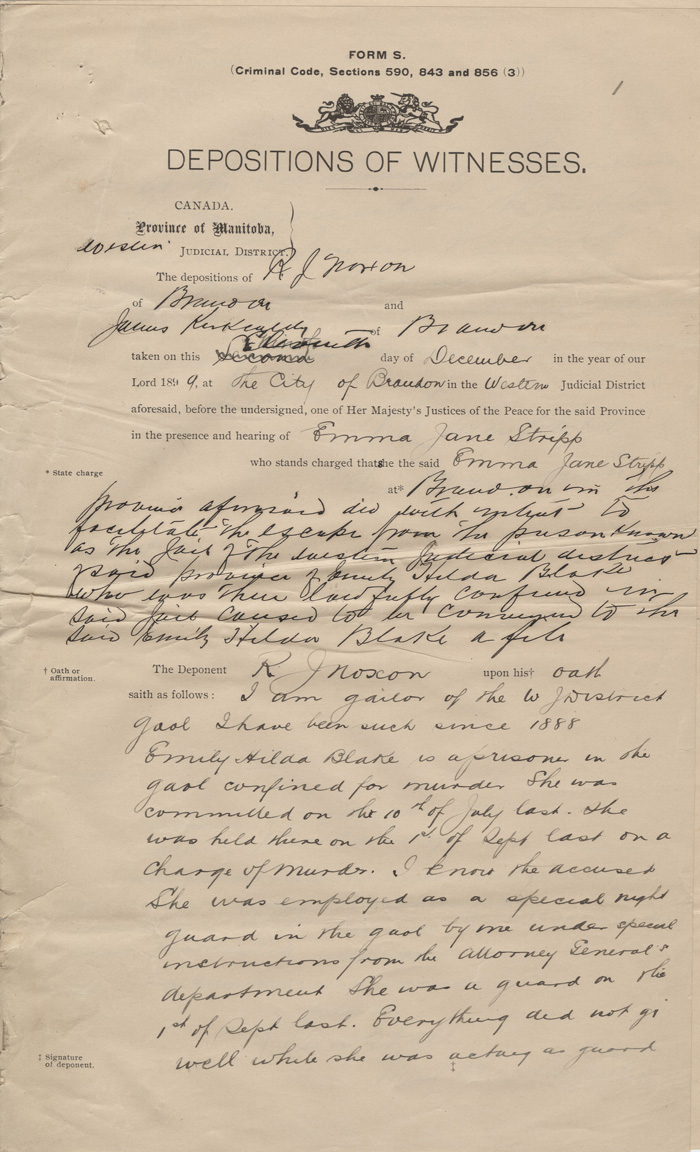 FORM S.
(Criminal Code, Sections 590, 843 and 856 (3))
1
DEPOSITIONS OF WITNESSES.
CANADA.
Province of Manitoba,
Western JUDICIAL DISTRICT.
The depositions of R J Noxon
of Brandon and
James Kirkcaldy of Brandon
taken on this second Eleventh day of December in the year of our
Lord 1899, at The City of Brandon in the Western Judicial District
aforesaid, before the undersigned, one of Her Majesty's Justices of the Peace for the said Province
in the presence and hearing of Emma Jane Stripp
who stands charged that she the said Emma Jane Stripp
* State charge
at* Brandon in the
province aforesaid did with intent to
facilitate the escape from the prison known
as the Jail of the western Judicial district
of said province of Emily Hilda Blake
who was then lawfully confined in
said Jail caused to be conveyed to the
said Emily Hilda Blake a file
† Oath or
affirmation.
The Deponent R J Noxon upon his† oath
saith as follows: I am gailor of the W J District
Gaol I have been such since 1888
Emily Hilda Blake is a prisoner in the
gaol confined for murder She was
committed on the 10th of July last. She
was held there on the 1st of Sept last on a
charge of murder. I know the accused
She was employed as a special night
guard in the gaol by me under special
instructions from the Attorney General's
department She was a guard on the
1st of Sept last. Everything did not go
well while she was acting as guard
‡ Signature
of deponent.
‡